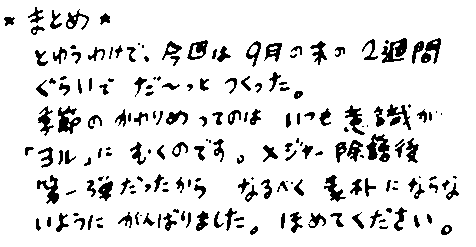 * まとめ *
というわけで、今回は9月の末の2週間
ぐらいで だ〜っと つくった。
季節のかわりめってのは いつも意識が
「ヨル」に むくのです。メジャー除籍後
第一弾だったから なるべく 素朴にならな
いように がんばりました。ほめてください。